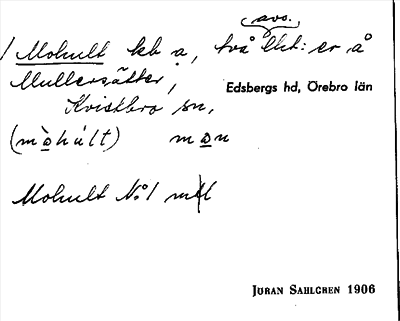 avs.
/ Mohult kb a, två lht: er å
Mullersätter, Edsbergs hd, Örebro län
Kvistbro sn,
(mòhúlt) man
Mohult No 1 mtl
JÖRAN SAHLGREN 1906